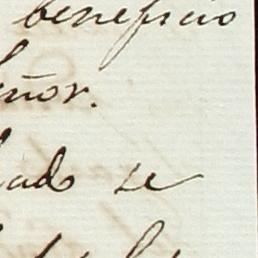 beneficio
eñor.
ado se